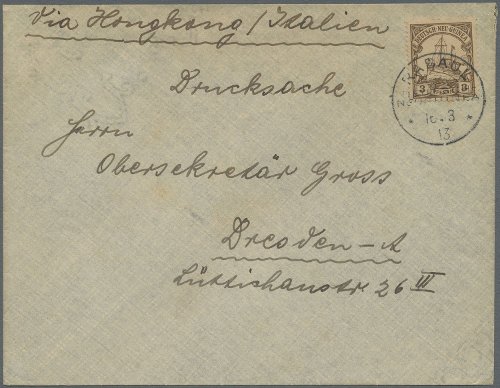 Via Hongkong / Italien
DEUTSCH-NEU-GUINEA
3 3
RABAUL
16. 3
13
Drucksache
Herrn
Obersekretär Gross
Dresden-A
Lüttichaustr. 26 III